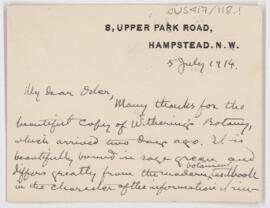 CUS417/118.1
8, UPPER PARK ROAD,
HAMPSTEAD. N.W.
5 July 1914.
My dear Osler,
Many thanks for the
beautiful copy of Withering's Botany,
which arrived two days ago. It is
beautifully bound in sage green and
differs greatly from the modern botanical textbook
in the character of the information it im-